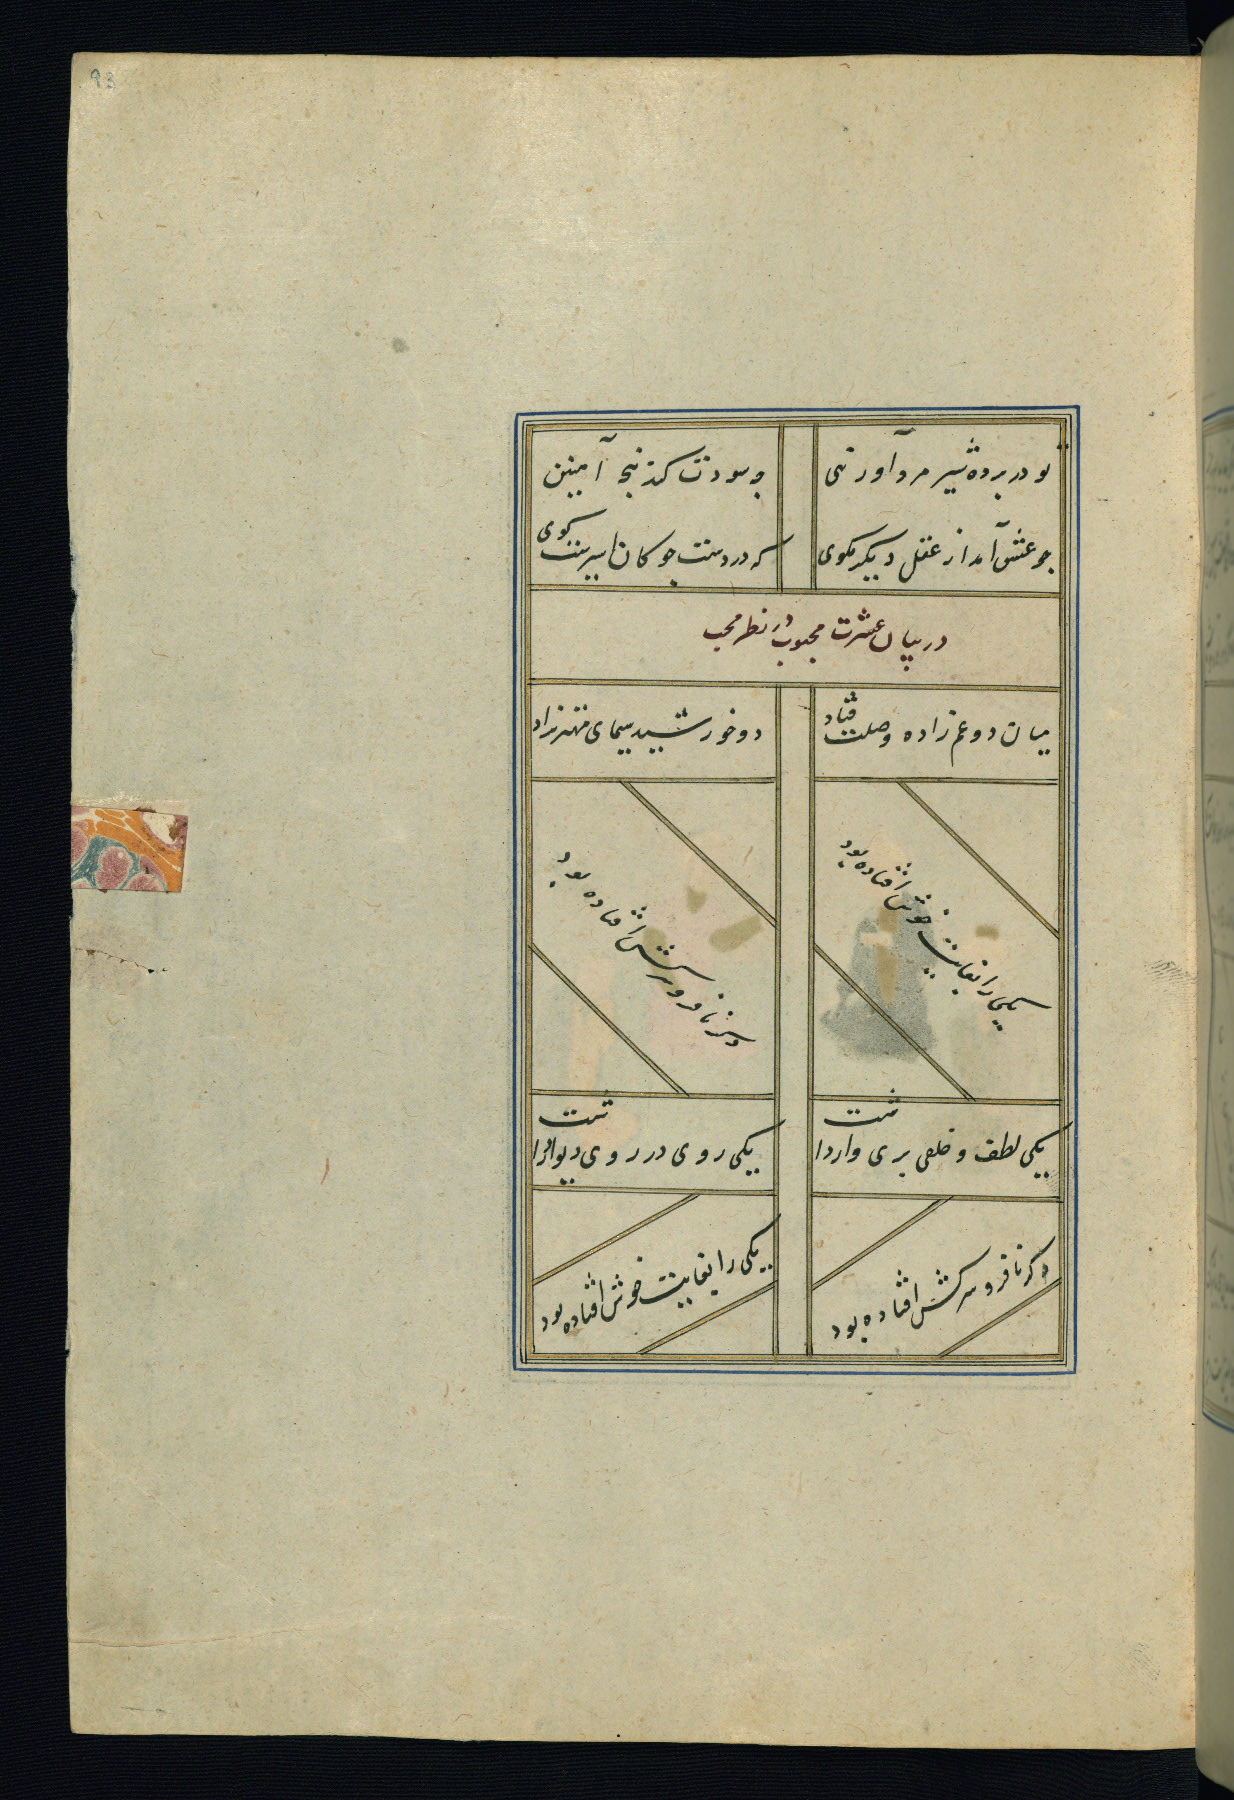 93
تو در پرده شیر مرد آور تنی
چو سودت کند پنجه آهنین
چو عشق آمد از عقل دیگر مگوی
که در دست چوکان اسیرست کوی
در بیان عشرت محبوب در نظر محب
میان دو عم زاده وصلت فتاد
دو خورشید سیمای مهتر نژاد
یکی را بغایت خوش افتاده بود
دکر نافر و سرکش افتاده بود
یکی لطف و خلقی پری وار داشت
یکی روی در روی دیوار داشت
دکر نافر و سرکش افتاده بود
یکی را بغایت خوش افتاده بود